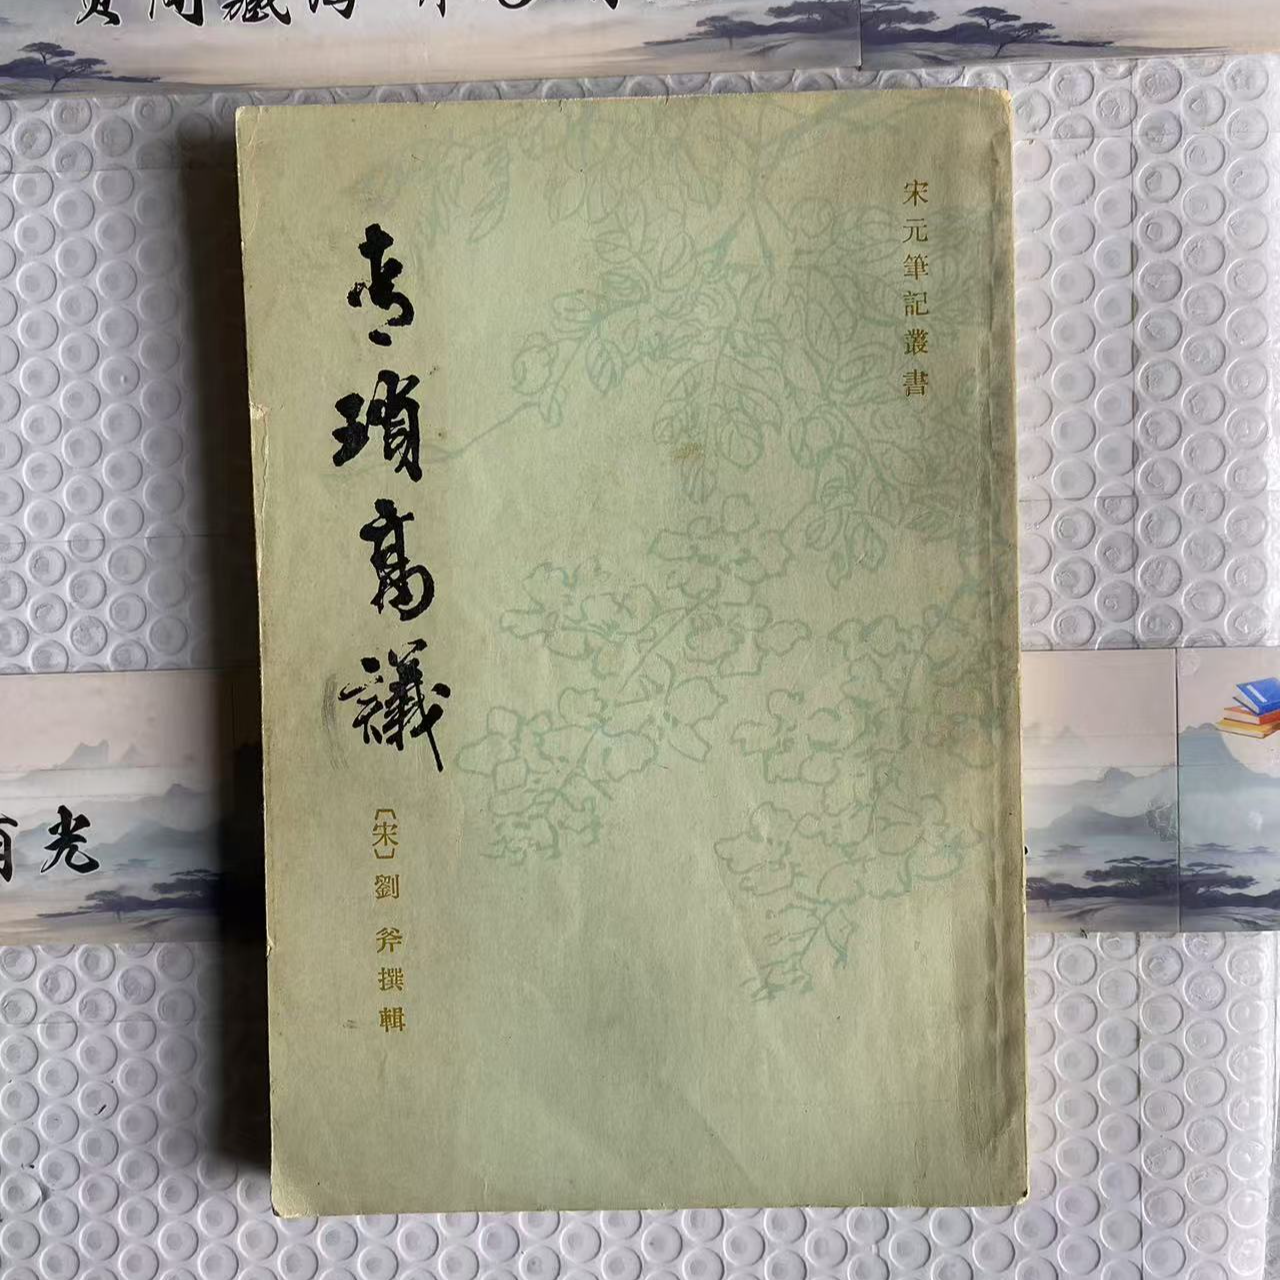 宋元筆記叢書
青瑣高議
〔宋〕劉斧撰輯
有光